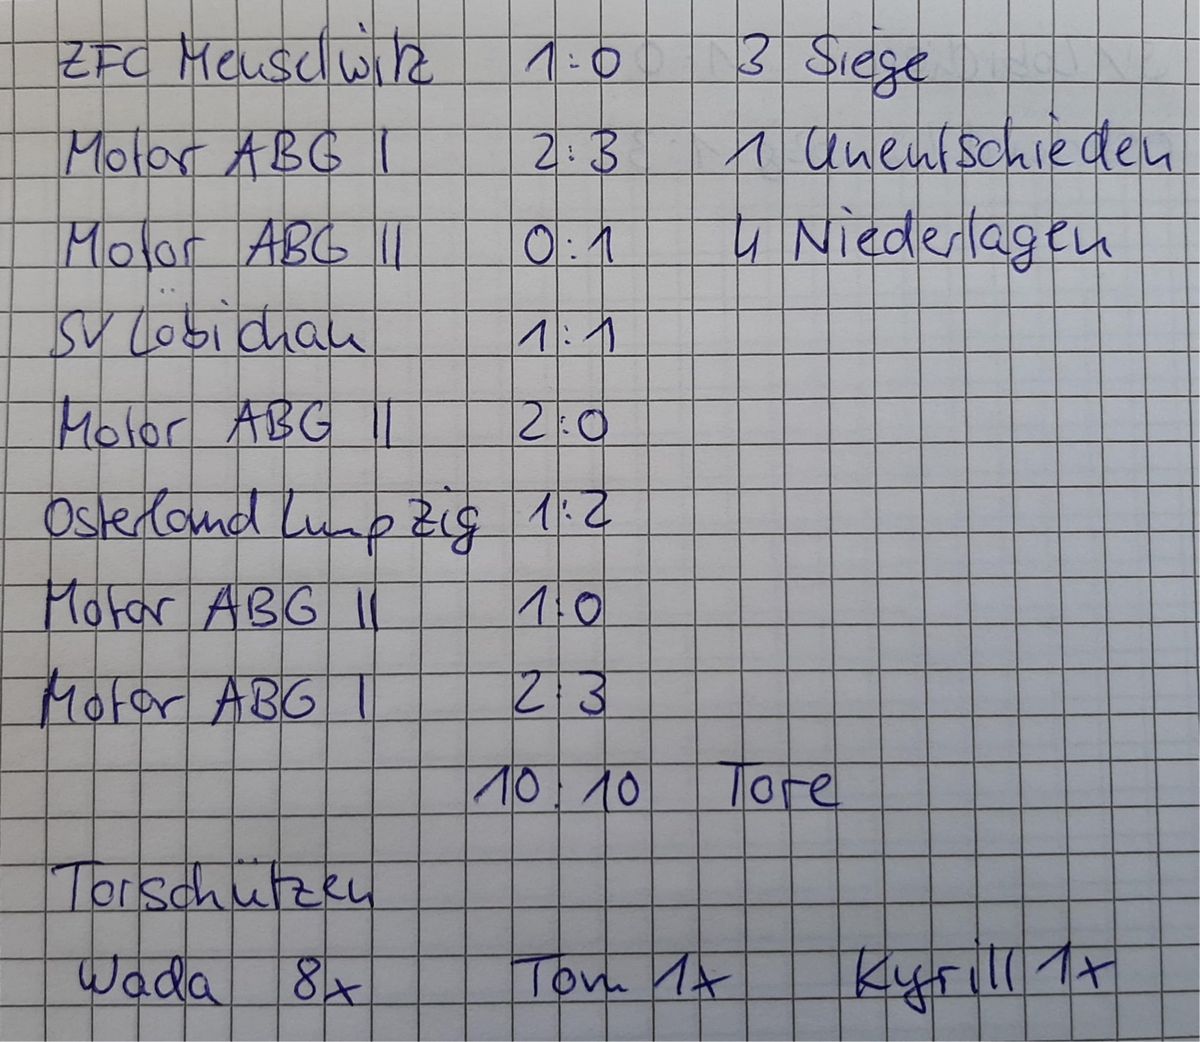 ZFC Meuselwitz 1:0 3 Siege
Motor ABG I 2:3 1 Unentschieden
Motor ABG II 0:1 4 Niederlagen
SV Löbichau 1:1
Motor ABG II 2:0
Osterland Lumpzig 1:2
Motor ABG II 1:0
Motor ABG I 2:3
10:10 Tore
Torschützen
Wada 8x Tom 1x Kyrill 1x